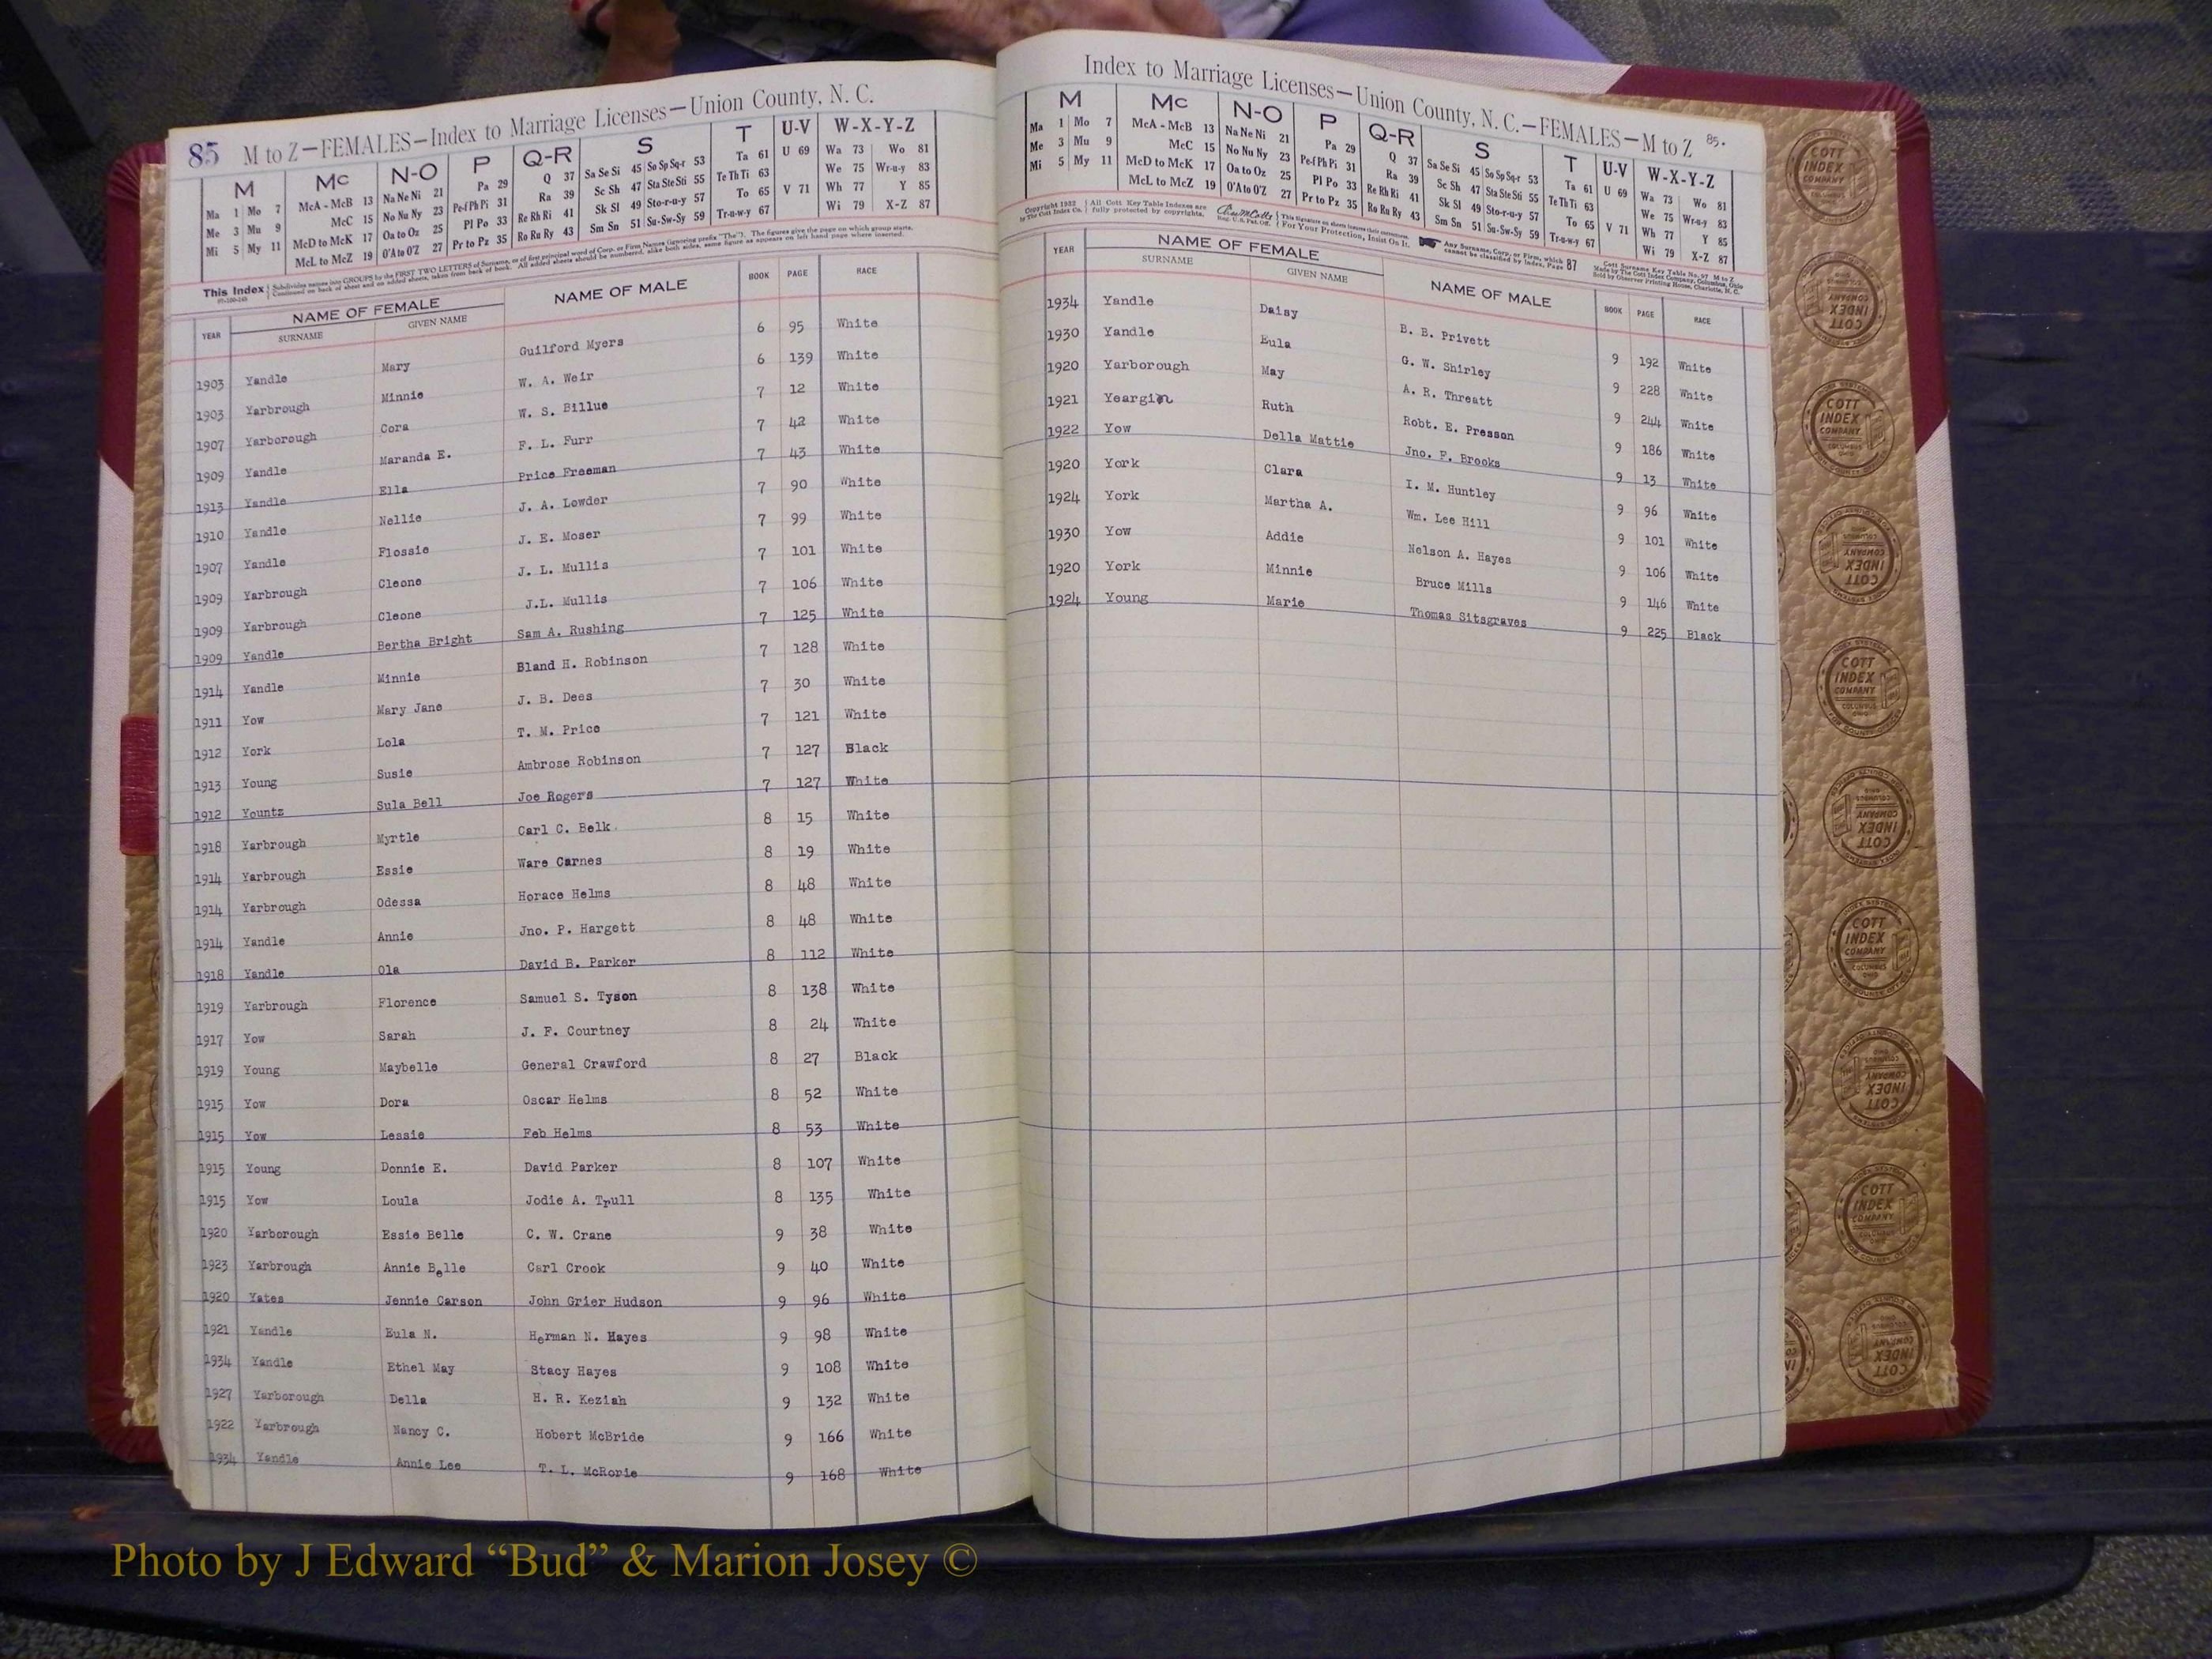 85 M to Z—FEMALES—Index to Marriage Licenses—Union County, N. C.
M Mc N-O P Q-R S T U-V W-X-Y-Z
Ma 1 Mo 7 McA - McB 13 Na Ne Ni 21 Pa 29 Q 37 Sa Se Si 45 So Sp Sq-r 53 Ta 61 U 69 Wa 73 Wo 81
Me 3 Mu 9 McC 15 No Nu Ny 23 Pe-f Ph Pi 31 Ra 39 Sc Sh 47 Sta Ste Sti 55 Te Th Ti 63 We 75 Wr-u-y 83
Mi 5 My 11 McD to McK 17 Oa to Oz 25 Pl Po 33 Re Rh Ri 41 Sk Sl 49 Sto-r-u-y 57 To 65 V 71 Wh 77 Y 85
McL to McZ 19 O'A to O'Z 27 Pr to Pz 35 Ro Ru Ry 43 Sm Sn 51 Su-Sw-Sy 59 Tr-u-w-y 67 Wi 79 X-Z 87
This Index Subdivides names into GROUPS by the FIRST TWO LETTERS of Surname, or of first principal word of Corp. or Firm Names (ignoring prefix "The"). The figures give the page on which group starts.
Continued on back of sheet and on added sheets, taken from back of book. All added sheets should be numbered, alike both sides, same figure as appears on left hand page where inserted.
YEAR NAME OF FEMALE NAME OF MALE BOOK PAGE RACE
SURNAME GIVEN NAME
1903 Yandle Mary Guilford Myers 6 95 White
1903 Yarbrough Minnie W. A. Weir 6 139 White
1907 Yarborough Cora W. S. Billue 7 12 White
1909 Yandle Maranda E. F. L. Furr 7 42 White
1913 Yandle Ella Price Freeman 7 43 White
1910 Yandle Nellie J. A. Lowder 7 90 White
1907 Yandle Flossie J. E. Moser 7 99 White
1909 Yarbrough Cleone J. L. Mullis 7 101 White
1909 Yarbrough Cleone J.L. Mullis 7 106 White
1909 Yandle Bertha Bright Sam A. Rushing 7 125 White
1914 Yandle Minnie Bland H. Robinson 7 128 White
1911 Yow Mary Jane J. B. Dees 7 30 White
1912 York Lola T. M. Price 7 121 White
1913 Young Susie Ambrose Robinson 7 127 Black
1912 Yountz Sula Bell Joe Rogers 7 127 White
1918 Yarbrough Myrtle Carl C. Belk 8 15 White
1914 Yarbrough Essie Ware Carnes 8 19 White
1914 Yarbrough Odessa Horace Helms 8 48 White
1914 Yandle Annie Jno. P. Hargett 8 48 White
1918 Yandle Ola David B. Parker 8 112 White
1919 Yarbrough Florence Samuel S. Tyson 8 138 White
1917 Yow Sarah J. F. Courtney 8 24 White
1919 Young Maybelle General Crawford 8 27 Black
1915 Yow Dora Oscar Helms 8 52 White
1915 Yow Lessie Feb Helms 8 53 White
1915 Young Donnie E. David Parker 8 107 White
1915 Yow Loula Jodie A. Trull 8 135 White
1920 Yarborough Essie Belle C. W. Crane 9 38 White
1923 Yarbrough Annie Belle Carl Crook 9 40 White
1920 Yates Jennie Carson John Grier Hudson 9 96 White
1921 Yandle Eula N. Herman N. Hayes 9 98 White
1934 Yandle Ethel May Stacy Hayes 9 108 White
1927 Yarborough Della H. R. Keziah 9 132 White
1922 Yarbrough Nancy C. Hobert McBride 9 166 White
1934 Yandle Annie Lee T. L. McRorie 9 168 White
Index to Marriage Licenses—Union County, N. C.—FEMALES—M to Z 85.
M Mc N-O P Q-R S T U-V W-X-Y-Z
Ma 1 Mo 7 McA - McB 13 Na Ne Ni 21 Pa 29 Q 37 Sa Se Si 45 So Sp Sq-r 53 Ta 61 U 69 Wa 73 Wo 81
Me 3 Mu 9 McC 15 No Nu Ny 23 Pe-f Ph Pi 31 Ra 39 Sc Sh 47 Sta Ste Sti 55 Te Th Ti 63 We 75 Wr-u-y 83
Mi 5 My 11 McD to McK 17 Oa to Oz 25 Pl Po 33 Re Rh Ri 41 Sk Sl 49 Sto-r-u-y 57 To 65 V 71 Wh 77 Y 85
McL to McZ 19 O'A to O'Z 27 Pr to Pz 35 Ro Ru Ry 43 Sm Sn 51 Su-Sw-Sy 59 Tr-u-w-y 67 Wi 79 X-Z 87
Copyright 1932 by The Cott Index Co. All Cott Key Table Indexes are fully protected by copyrights. Reg. U.S. Pat. Off. For Your Protection, Insist On It. Any Surname, Corp. or Firm, which cannot be classified by Index, Page 87
Cott Surname Key Table No. 97 M to Z
Made by The Cott Index Company, Columbus, Ohio
Sold by Observer Printing House, Charlotte, N. C.
YEAR NAME OF FEMALE NAME OF MALE BOOK PAGE RACE
SURNAME GIVEN NAME
1934 Yandle Daisy B. B. Privett 9 192 White
1930 Yandle Eula G. W. Shirley 9 228 White
1920 Yarborough May A. R. Threatt 9 244 White
1921 Yeargin Ruth Robt. E. Presson 9 186 White
1922 Yow Della Mattie Jno. F. Brooks 9 13 White
1920 York Clara I. M. Huntley 9 96 White
1924 York Martha A. Wm. Lee Hill 9 101 White
1930 Yow Addie Nelson A. Hayes 9 106 White
1920 York Minnie Bruce Mills 9 146 White
1924 Young Marie Thomas Sitsgraves 9 225 Black
COTT INDEX COMPANY COLUMBUS OHIO
Photo by J Edward “Bud” & Marion Josey ©